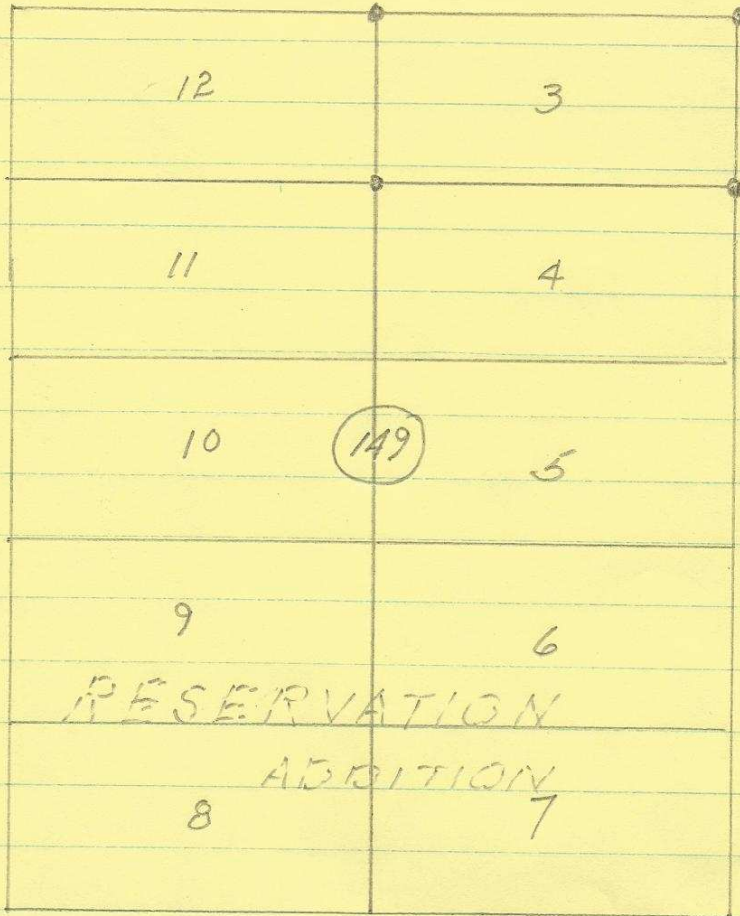 12 3
11 4
10 149 5
9 6
RESERVATION
ADDITION
8 7